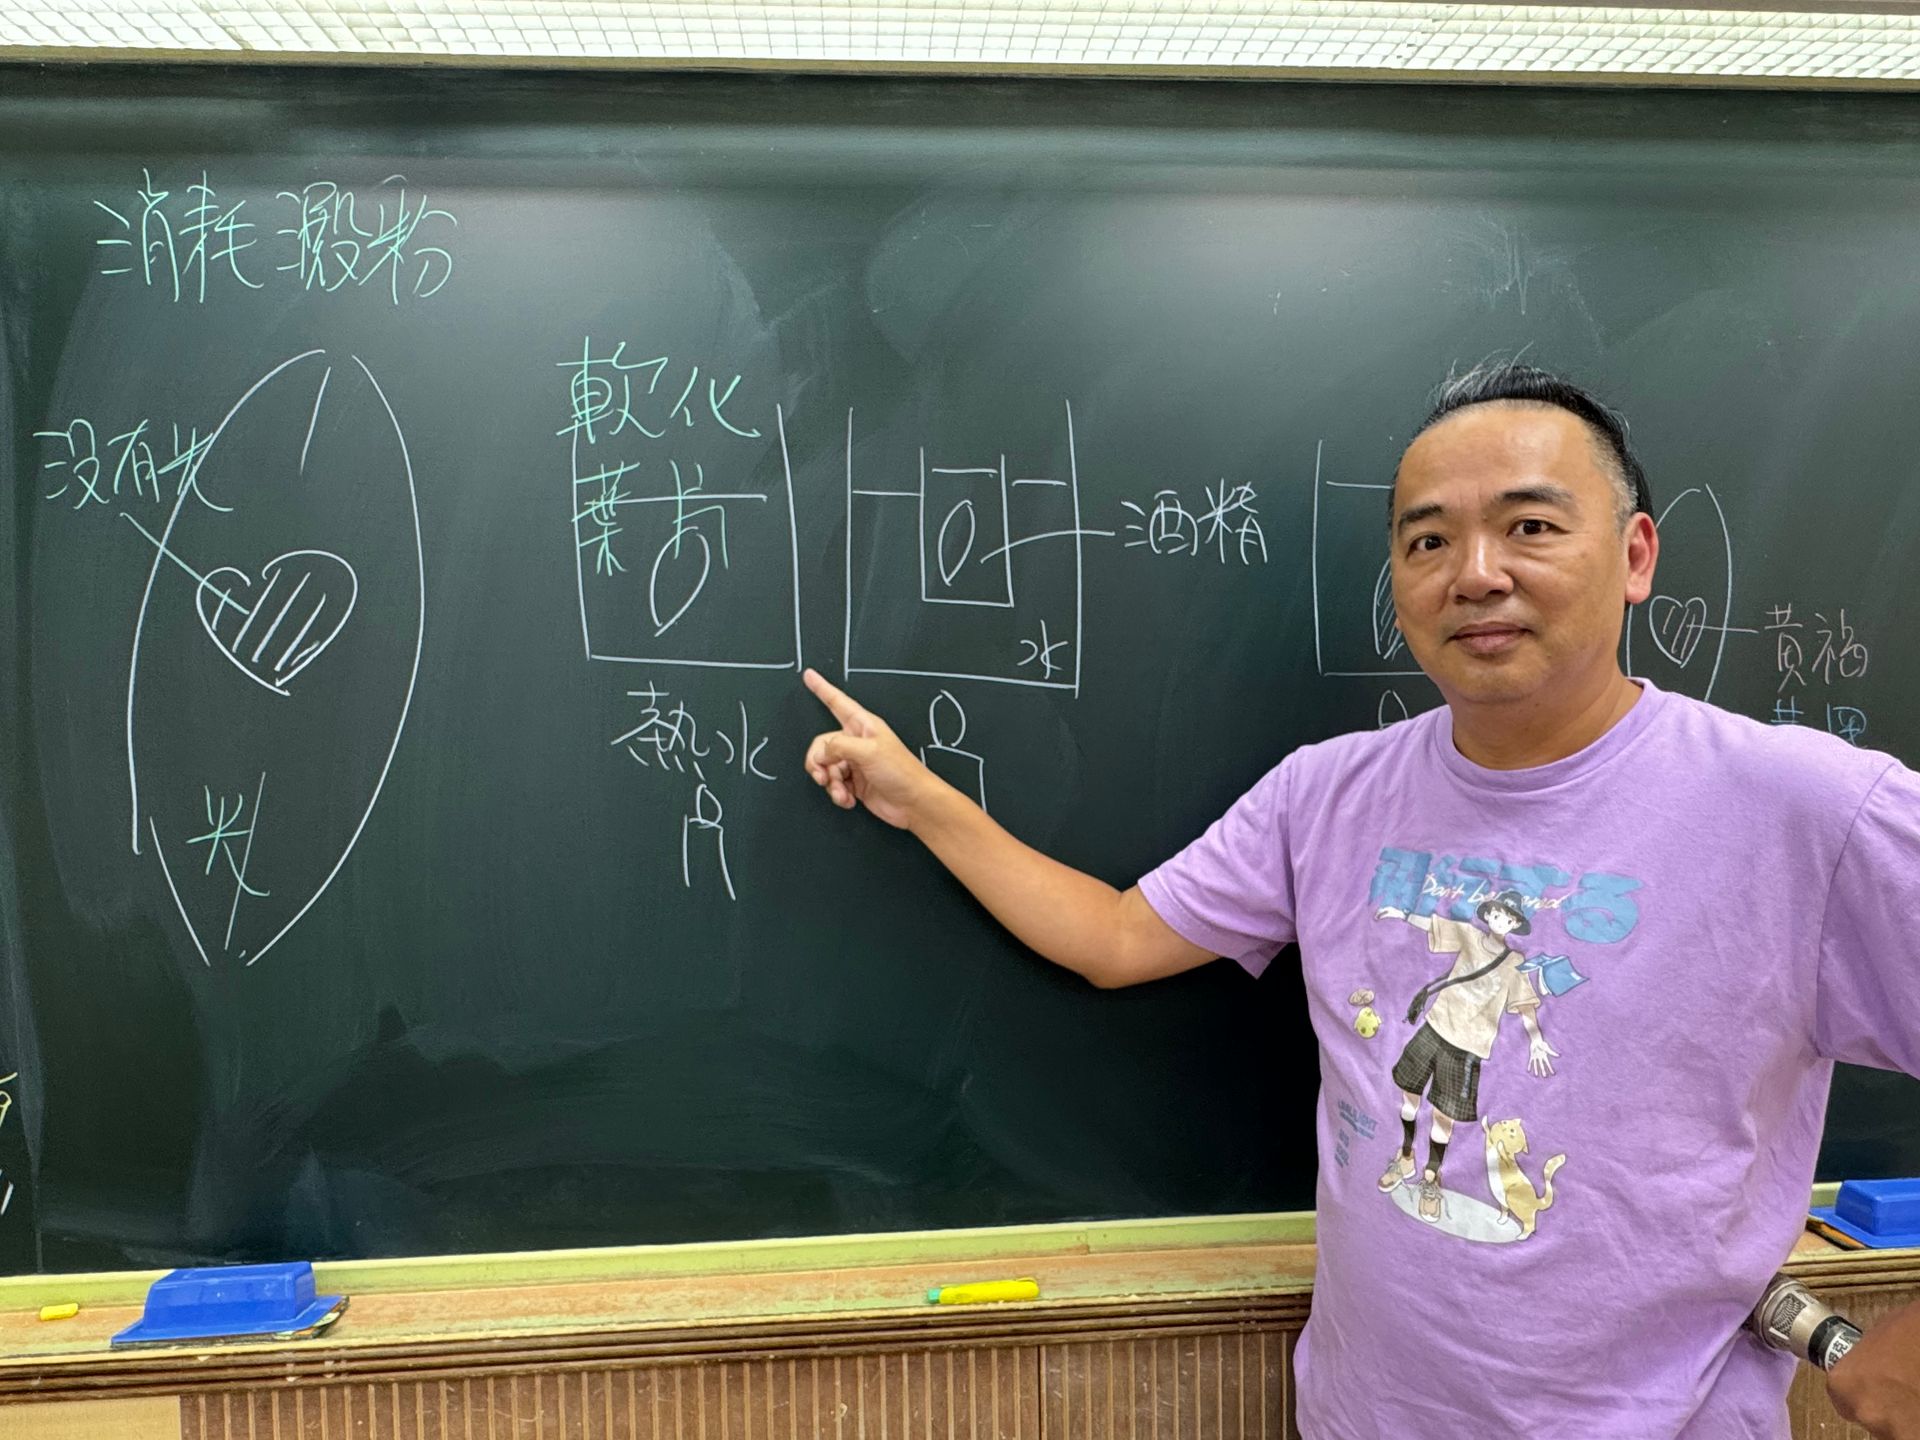 消耗澱粉
沒有光
光
軟化
葉片
熱水
酒精
水
黃褐
Don't be